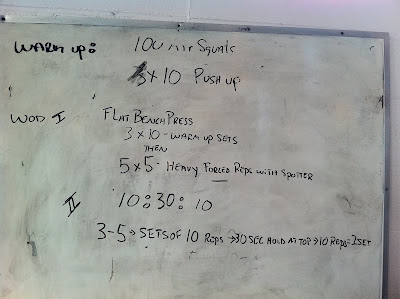 WARM UP: 100 Air Squats
3x10 PUSH UP
WOD I FLAT BENCH PRESS
3 x 10 - WARM UP SETS
THEN
5 x 5 - HEAVY FORCED REPS WITH SPOTTER
II 10:30:10
3-5 → SETS OF 10 REPS → 30 SEC HOLD AT TOP → 10 REPS = 1 SET